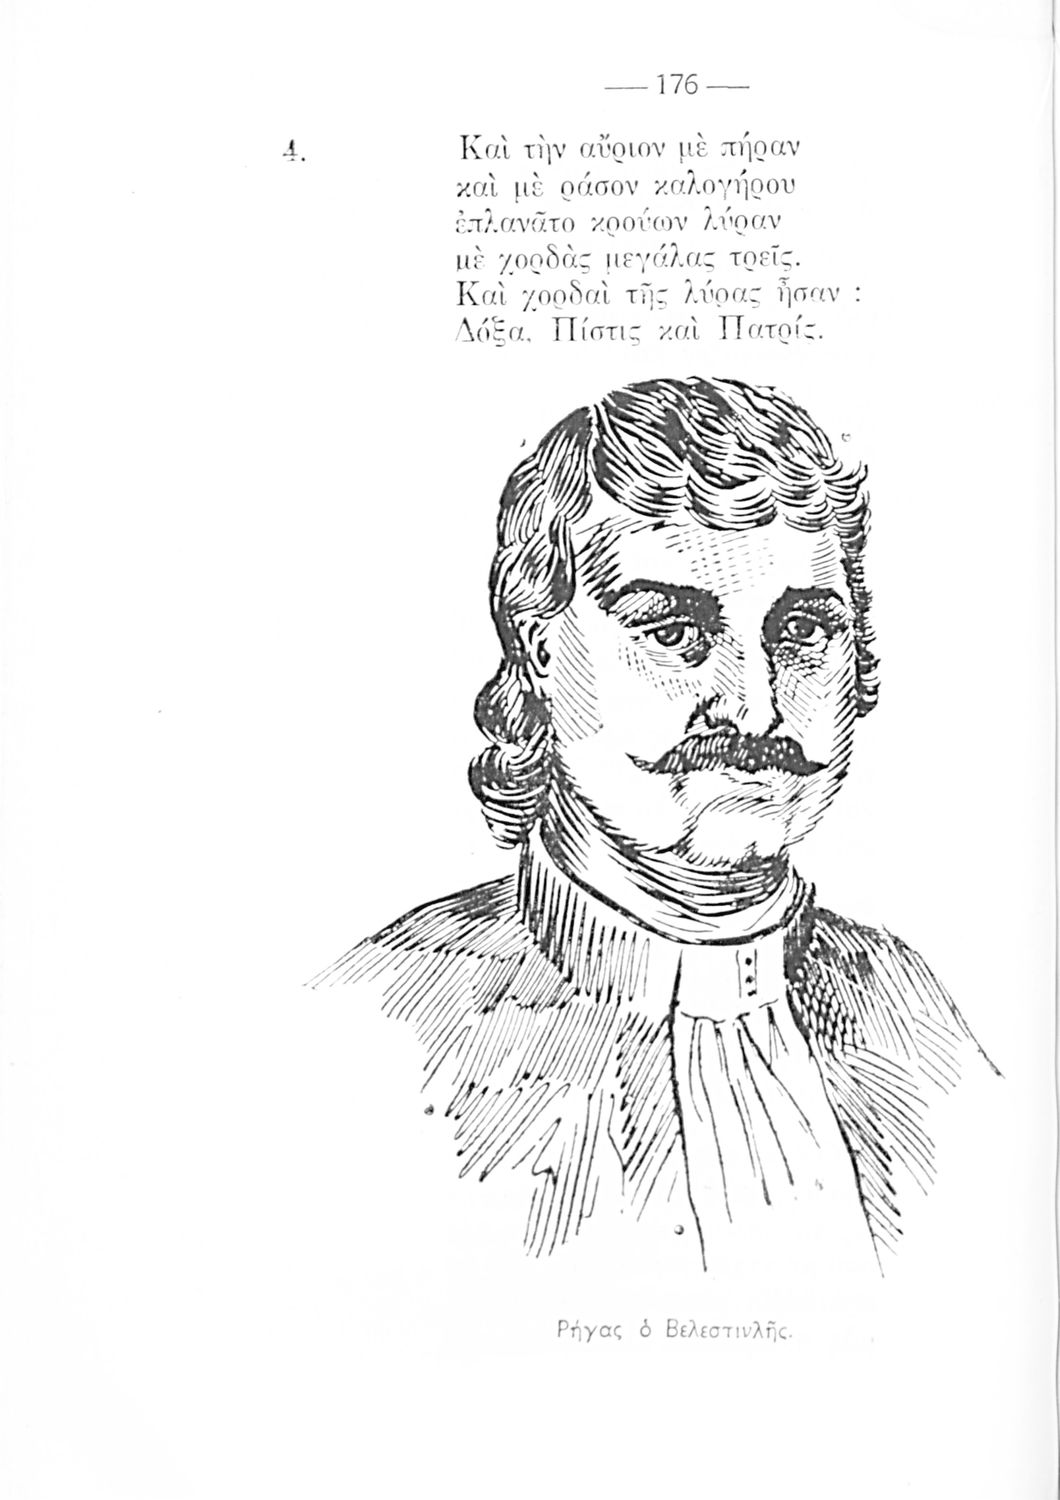 — 176 —
4. Καὶ τὴν αὔριον μὲ πήραν
καὶ μὲ ράσον καλογήρου
ἐπλανᾶτο κρούων λύραν
μὲ χορδὰς μεγάλας τρεῖς.
Καὶ χορδαὶ τῆς λύρας ἦσαν :
Δόξα, Πίστις καὶ Πατρίς.
Ρήγας ὁ Βελεστινλῆς.